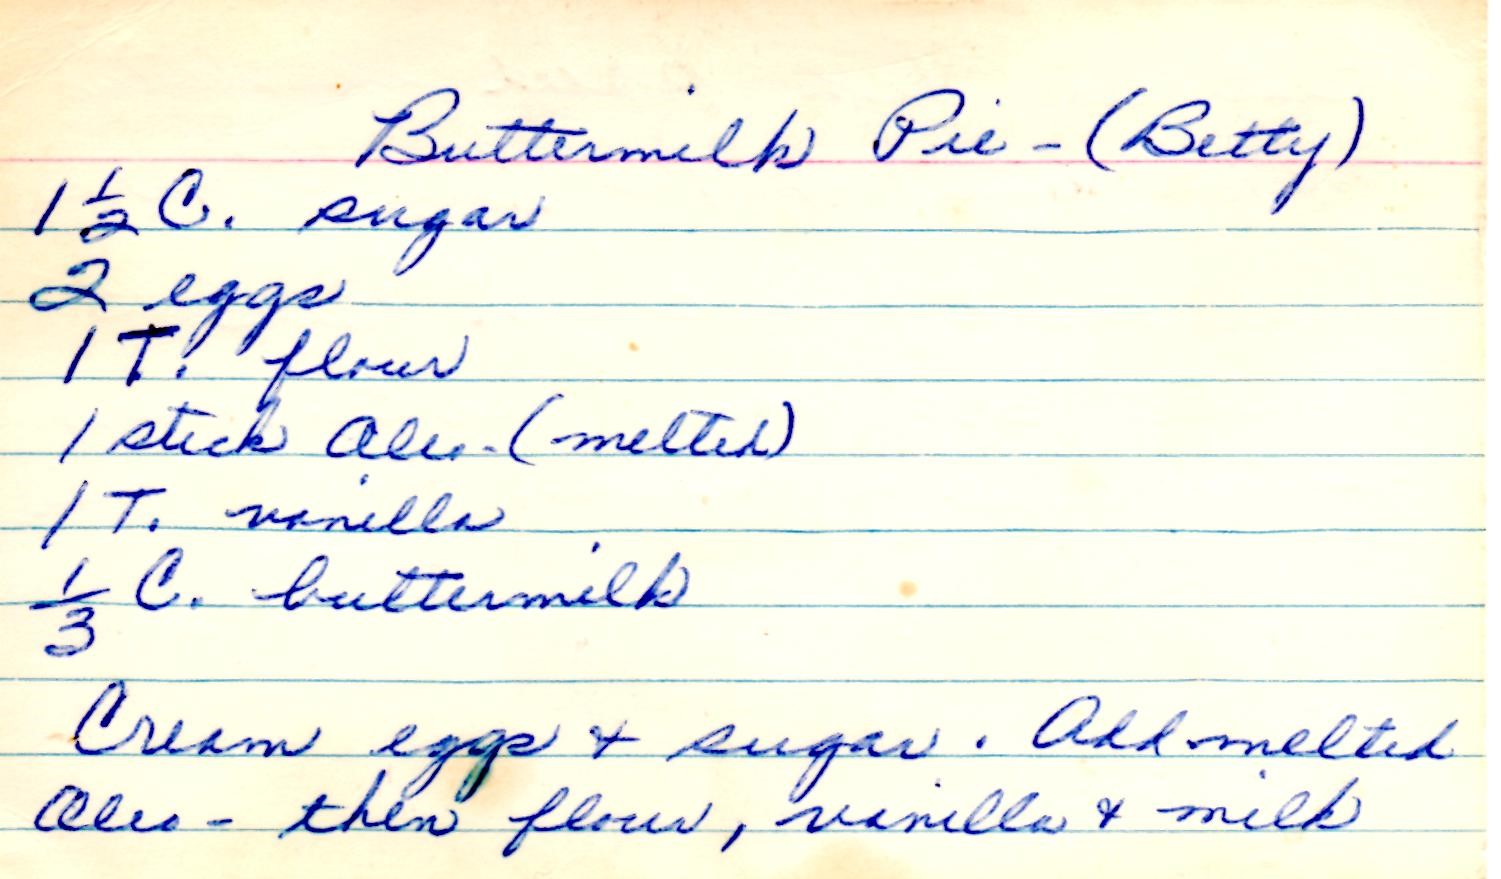 Buttermilk Pie - (Betty)
1 1/2 C. sugar
2 eggs
1 T. flour
1 stick Oleo - (melted)
1 T. vanilla
1/3 C. buttermilk
Cream eggs & sugar. Add melted
Oleo - then flour, vanilla & milk